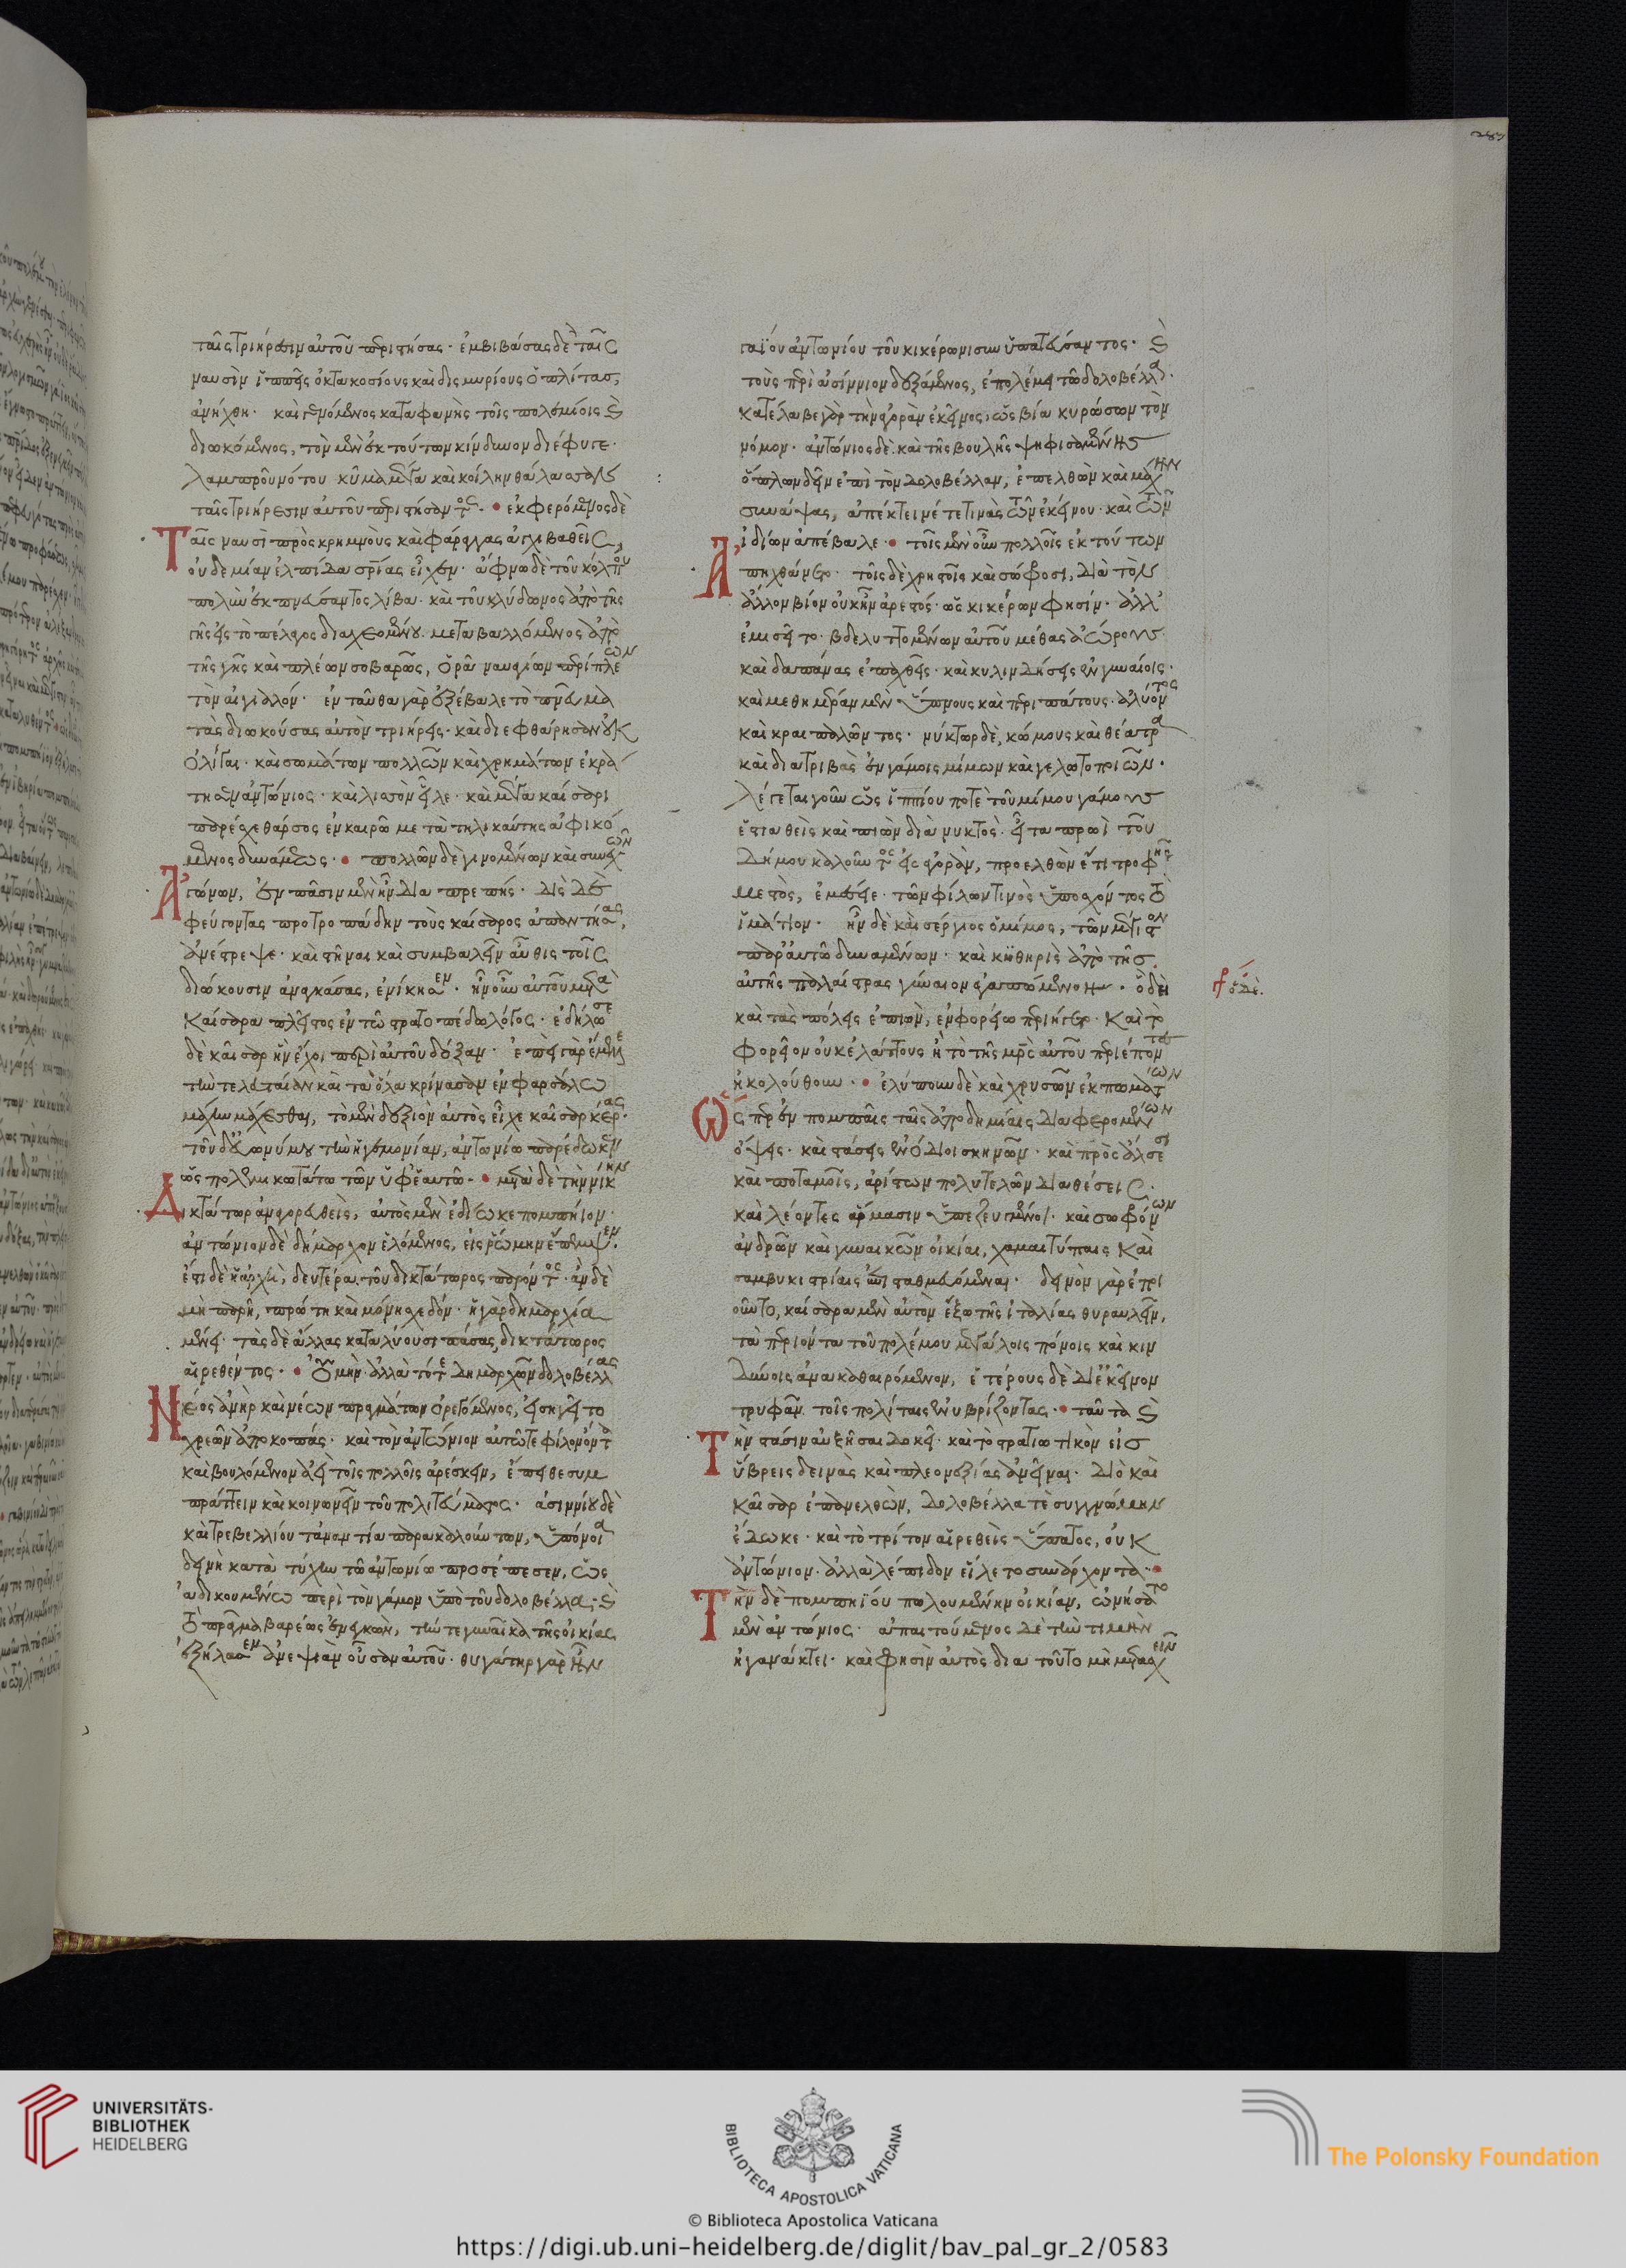 ταῖς τριήρεσιν αὐτοῦ περιστήσας· ἐμβιβάσας δὲ ταῖς
ναυσὶν ἱππεῖς ὀκτακοσίους καὶ δὶς μυρίους ὁπλίτας,
ἀνήχθη· καὶ γενόμενος καταφανὴς τοῖς πολεμίοις καὶ
διωκόμενος, τὸν μὲν ἐκ τούτων κίνδυνον διέφυγε·
λαμπροῦ νότου κῦμα μέγα καὶ κοίλην θάλασσαν
ταῖς τριήρεσιν αὐτοῦ περιστήσαντος· ἐκφερόμενος δὲ
Ταῖς ναυσὶ πρὸς κρημνοὺς καὶ φάραγγας ἀγχιβαθεῖς,
οὐδεμίαν ἐλπίδα σωτηρίας εἶχεν· ἄφνω δὲ τοῦ κόλπου
πολὺν ἐκπνεύσαντος λίβα· καὶ τοῦ κλύδωνος ἀπὸ τῆς
γῆς εἰς τὸ πέλαγος διαχεομένου· μεταβαλλόμενος ἀπὸ
τῆς γῆς καὶ πλέων σοβαρῶς, ὁρᾶ ναυαγίων περίπλεων
τὸν αἰγιαλόν· ἐνταῦθα γὰρ ἐξέβαλε τὸ πνεῦμα
τὰς διωκούσας αὐτὸν τριήρεις· καὶ διεφθάρησαν οὐκ
ὀλίγαι· καὶ σωμάτων πολλῶν καὶ χρημάτων ἐκρά
τησεν ἀντώνιος· καὶ λισσὸν εἷλε· καὶ μέγα καίσαρι
παρέσχε θάρσος ἐν καιρῶ μετὰ τηλικαύτης ἀφικό
μενος δυνάμεως· πολλῶν δὲ γινομένων καὶ συνεχῶν
Ἀγώνων, ἐν πᾶσιν μὲν ἦν διαπρεπής· δὶς δὲ
φεύγοντας προτροπάδην τοὺς καίσαρος ἀπαντήσας,
ἀνέστρεψε· καὶ στῆναι καὶ συμβαλεῖν αὖθις τοῖς
διώκουσιν ἀναγκάσας, ἐνίκησεν· ἦν οὖν αὐτοῦ μετὰ
Καίσαρα πλεῖστος ἐν τῶ στρατοπέδω λόγος· ἐδήλωσε
δὲ καῖσαρ ἣν ἔχοι περὶ αὐτοῦ δόξαν· ἐπεὶ γὰρ ἔμελλε
τὴν τελευταίαν καὶ τὰ ὅλα κρίνασαν ἐν φαρσάλω
μάχην μάχεσθαι, τὸ μὲν δεξιὸν αὐτὸς εἶχε καῖσαρ κέρας·
τοῦ δ' εὐωνύμου τὴν ἡγεμονίαν, ἀντωνίω παρέδωκεν
ὡς πολεμικωτάτω τῶν ὑφ' ἑαυτῶ· μετὰ δὲ τὴν νίκην
Δικτάτωρ ἀναγορευθείς, αὐτὸς μὲν ἐδίωκε πομπήιον·
ἀντώνιον δὲ δήμαρχον ἑλόμενος, εἰς ῥώμην ἔπεμψεν.
ἔστι δὲ ἡ ἀρχὴ, δευτέρα τοῦ δικτάτωρος παρόντος· ἂν δὲ
μὴ παρῆ, πρώτη καὶ μόνη σχεδόν· ἡ γὰρ δημαρχία
μένει· τὰς δὲ ἄλλας καταλύουσι πάσας, δικτάτωρος
αἱρεθέντος· Οὐ μὴν ἀλλὰ τότε δημαρχῶν δολοβέλλας
Νέος ἀνὴρ καὶ νέων πραγμάτων ὀρεγόμενος, εἰσηγεῖτο
χρεῶν ἀποκοπάς· καὶ τὸν ἀντώνιον αὐτῶ τε φίλον ὄντα
καὶ βουλόμενον ἀεὶ τοῖς πολλοῖς ἀρέσκειν, ἔπειθε συμ
πράττειν καὶ κοινωνεῖν τοῦ πολιτεύματος· ἀσιννίου δὲ
καὶ τρεβελλίου τἀναντία παρακαλούντων, ὑπόνοια
δεινὴ κατὰ τύχην τῶ ἀντωνίω προσέπεσεν, ὡς
ἀδικουμένω περὶ τὸν γάμον ὑπὸ τοῦ δολοβέλλα· καὶ
τὸ πρᾶγμα βαρέως ἐνεγκὼν, τήν τε γυναῖκα τῆς οἰκίας
ἐξήλασεν ἀνεψιὰν οὖσαν αὐτοῦ· θυγάτηρ γὰρ ἦν
γαΐου ἀντωνίου τοῦ κικέρωνι συνυπατεύσαντος· καὶ
τοὺς περὶ ἀσίννιον δεξάμενος, ἐπολέμει τῶ δολοβέλλα·
κατέλαβε γὰρ τὴν ἀγορὰν ἐκεῖνος, ὡς βία κυρώσων τὸν
νόμον· ἀντώνιος δὲ καὶ τῆς βουλῆς ψηφισαμένης
ὅπλων δεῖν ἐπὶ τὸν δολοβέλλαν, ἐπελθὼν καὶ μάχην
συνάψας, ἀπέκτεινέ τέ τινας τῶν ἐκείνου· καὶ τῶν
ἰδίων ἀπέβαλε· τοῖς μὲν οὖν πολλοῖς ἐκ τούτων
Ἀπηχθάνετο· τοῖς δὲ χρηστοῖς καὶ σώφροσι, διὰ τὸν
ἄλλον βίον οὐκ ἦν ἀρεστός· ὡς κικέρων φησίν· ἀλλ'
ἐμισεῖτο· βδελυττομένων αὐτοῦ μέθας ἀώρους
καὶ δαπάνας ἐπαχθεῖς· καὶ κυλινδήσεις ἐν γυναίοις·
καὶ μεθημέραν μὲν ὕπνους καὶ περιπάτους ἀλύοντος
καὶ κραιπαλῶντος· νύκτωρ δὲ, κώμους καὶ θέατρα
καὶ διατριβὰς ἐν γάμοις μίμων καὶ γελωτοποιῶν·
λέγεται γοῦν ὡς ἱππίου ποτὲ τοῦ μίμου γάμους
ἑστιαθεὶς καὶ πιὼν διὰ νυκτὸς· εἶτα πρωὶ τοῦ
δήμου καλοῦντος εἰς ἀγορὰν, προελθὼν ἔτι τροφῆς
μεστὸς, ἐμέσειε· τῶν φίλων τινὸς ὑποσχόντος τὸ
ἱμάτιον· ἦν δὲ καὶ σέργιος ὁ μῖμος, τῶν μέγιστον
παρ' αὐτῶ δυναμένων· καὶ κυθηρὶς ἀπὸ τῆς
αὐτῆς παλαίστρας γύναιον ἀγαπώμενον· ὃ δὴ
καὶ τὰς πόλεις ἐπιὼν, ἐν φορείω περιήγετο· καὶ τὸ
φορεῖον οὐκ ἐλάττους ἢ τὸ τῆς μητρὸς αὐτοῦ περιέποντες
ἠκολούθουν· ἐλύπουν δὲ καὶ χρυσῶν ἐκπωμάτων
Ὥσπερ ἐν πομπαῖς ταῖς ἀποδημίαις διαφερομένων
ὄψεις· καὶ στάσεις ἐνόδιοι σκηνῶν· καὶ πρὸς ἄλσεσι
καὶ ποταμοῖς, ἀρίστων πολυτελῶν διαθέσεις·
καὶ λέοντες ἅρμασιν ὑπεζευγμένοι· καὶ σωφρόνων
ἀνδρῶν καὶ γυναικῶν οἰκίαι, χαμαιτύπαις καὶ
σαμβυκιστρίαις ἐπισταθμευόμεναι· δεινὸν γὰρ ἐποι
οῦντο, καίσαρα μὲν αὐτὸν ἔξω τῆς ἰταλίας θυραυλεῖν,
τὰ περιόντα τοῦ πολέμου μεγάλοις πόνοις καὶ κιν
δύνοις ἀνακαθαιρόμενον, ἑτέρους δὲ δι' ἐκεῖνον
τρυφᾶν τοῖς πολίταις ἐνυβρίζοντας· ταῦτα καὶ
Τὴν στάσιν αὐξῆσαι δοκεῖ· καὶ τὸ στρατιωτικὸν εἰς
ὕβρεις δεινὰς καὶ πλεονεξίας ἀνεῖναι· διὸ καὶ
καῖσαρ ἐπανελθὼν, δολοβέλλα τὲ συγγνώμην
ἔδωκε· καὶ τὸ τρίτον αἱρεθεὶς ὕπατος, οὐκ
ἀντώνιον ἀλλὰ λέπιδον εἵλετο συνάρχοντα·
Τὴν δὲ πομπηΐου πωλουμένην οἰκίαν, ὠνήσατο
μὲν ἀντώνιος· ἀπαιτούμενος δὲ τὴν τιμὴν
ἠγανάκτει· καὶ φησὶν αὐτὸς διὰ τοῦτο μὴ μετασχεῖν
UNIVERSITÄTS-
BIBLIOTHEK
HEIDELBERG
BIBLIOTECA APOSTOLICA VATICANA
The Polonsky Foundation
© Biblioteca Apostolica Vaticana
https://digi.ub.uni-heidelberg.de/diglit/bav_pal_gr_2/0583